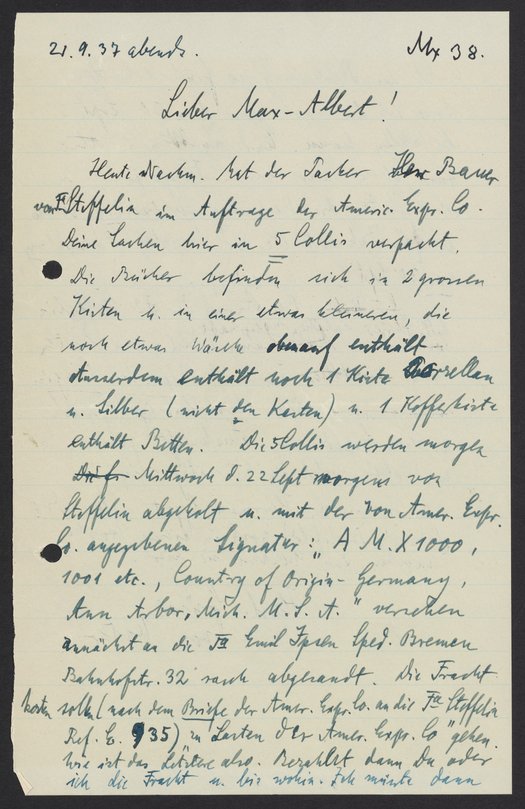 21.9.37 abends.
Mx 38.
Lieber Max-Albert!
Heute Nachm. hat der Packer Herr Bauer
von Fa Steffelin im Auftrage der Americ. Expr. Co.
Deine Sachen hier in 5 Collis verpackt.
Die Bücher befinden sich in 2 grossen
Kisten u. in einer etwas kleineren, die
noch etwas Wäsche obenauf enthält
Ausserdem enthält noch 1 Kiste Porzellan
u. Silber (nicht den Kasten) u. 1 Kofferkiste
enthält Betten. Die 5 Collis werden morgen
Mittwoch d. 22 Sept morgens von
Steffelin abgeholt u. mit der von Amer. Expr.
Co. angegebenen Signatur: "A M. X 1000,
1001 etc., Country of Origin - Germany,
Ann Arbor, Mich. U.S.A." versehen
zunächst an die Fa Emil Ipsen Sped. Bremen
Bahnhofstr. 32 rasch abgesandt. Die Fracht
kosten sollen (nach dem Briefe der Amer. Expr. Co. an die Fa Steffelin
Ref. E. 935) zu Lasten der Amer. Expr. Co" gehen.
Wie ist das Letztere also. Bezahlst dann Du oder
ich die Fracht u. bis wohin. Ich müsste dann